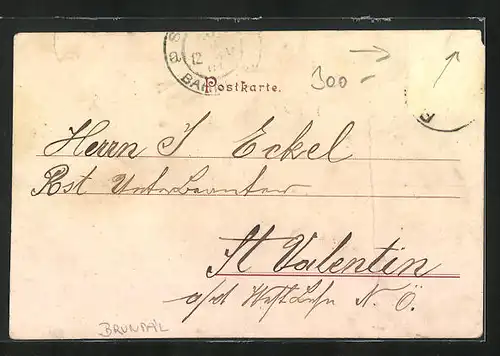 12
BA
Postkarte.
300
Herrn J Eckel
Post Unterbeamter
St Valentin
a/d Westbahn N. Ö.